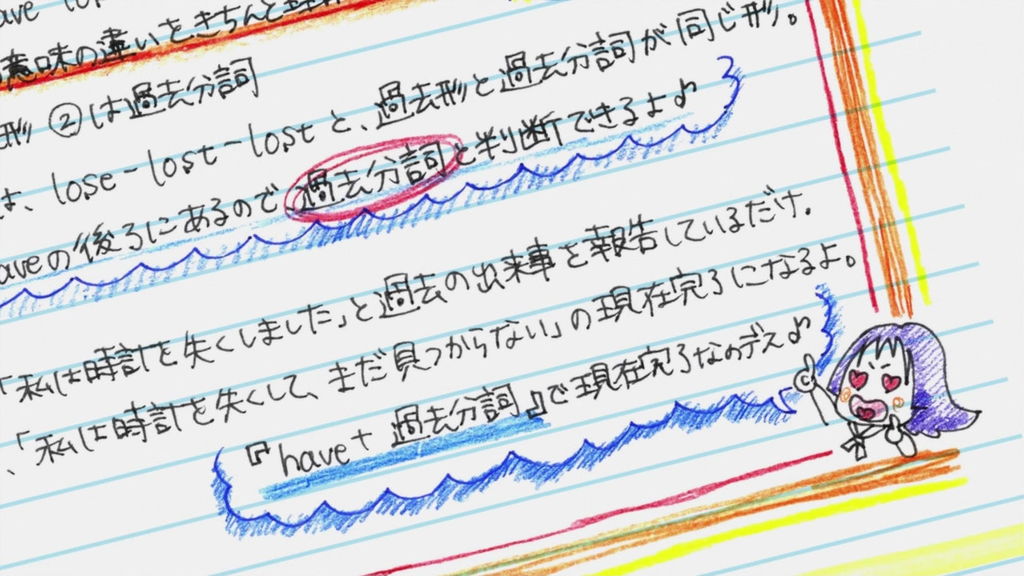 have
意味の違いをきちんと
形 ②は過去分詞
は、lose-lost-lostと、過去形と過去分詞が同じ形。
aveの後ろにあるので過去分詞と判断できるよ♪
「私は時計を失くしました」と過去の出来事を報告しているだけ.
、「私は時計を失くして、まだ見つからない」の現在完了になるよ。
『have+過去分詞』で現在完了なのデス♪